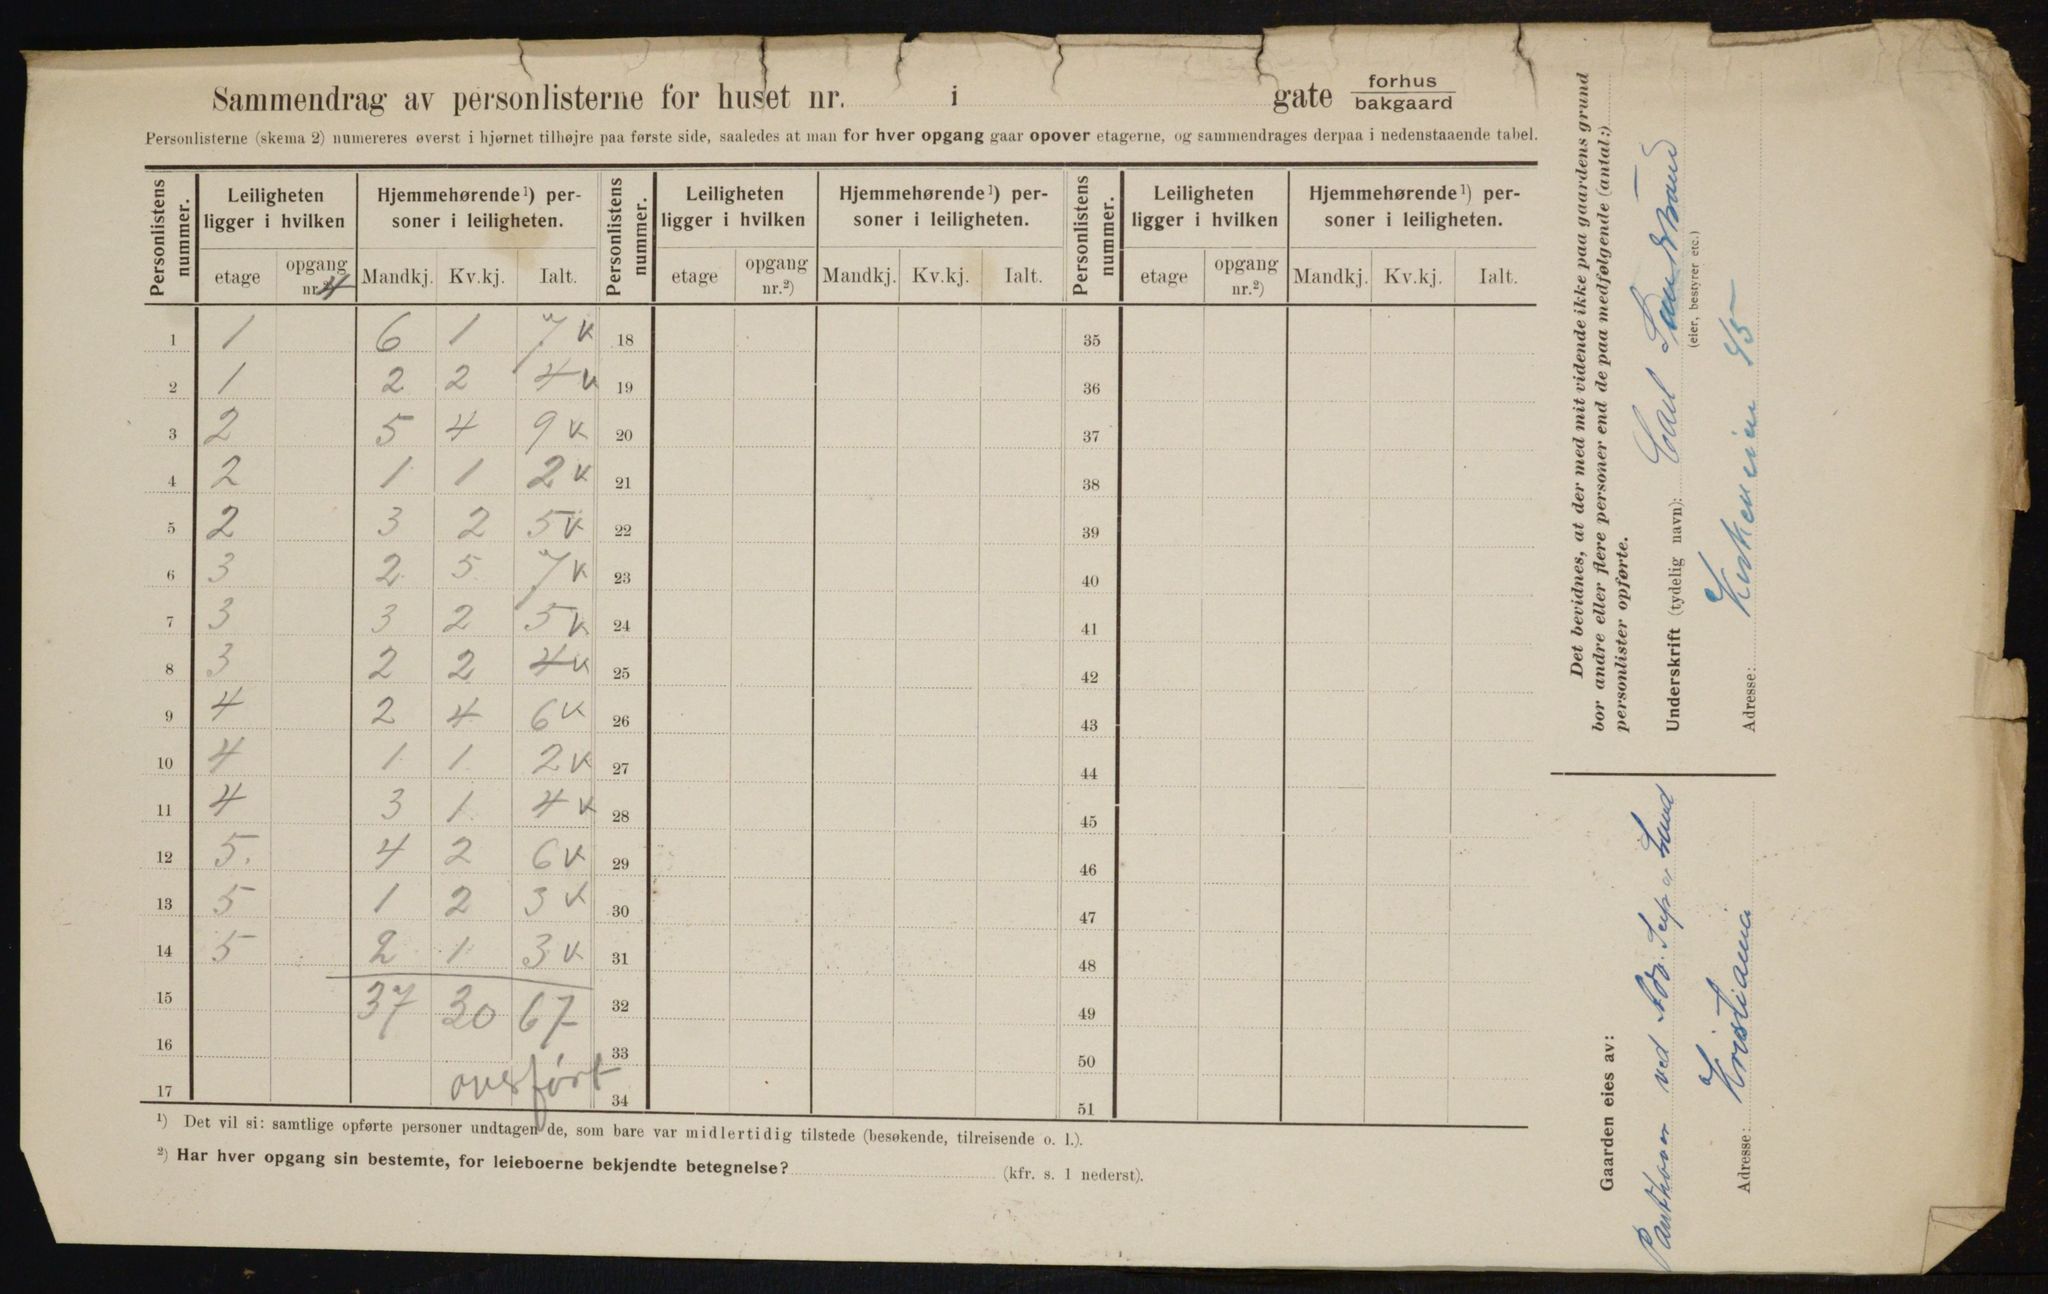 Sammendrag av personlisterne for huset nr. i gate forhus bakgaard
Personlisterne (skema 2) numereres øverst i hjørnet tilhøjre paa første side, saaledes at man for hver opgang gaar opover etagerne, og sammendrages derpaa i nedenstaaende tabel.
Personlistens nummer. Leiligheten ligger i hvilken Hjemmehørende¹) personer i leiligheten. Personlistens nummer. Leiligheten ligger i hvilken Hjemmehørende¹) personer i leiligheten. Personlistens nummer. Leiligheten ligger i hvilken Hjemmehørende¹) personer i leiligheten.
etage opgang nr.²) 4 Mandkj. Kv.kj. Ialt. etage opgang nr.²) Mandkj. Kv.kj. Ialt. etage opgang nr.²) Mandkj. Kv.kj. Ialt.
1 1 6 1 7 v 18 35
2 1 2 2 4 v 19 36
3 2 5 4 9 v 20 37
4 2 1 1 2 v 21 38
5 2 3 2 5 v 22 39
6 3 2 5 7 v 23 40
7 3 3 2 5 v 24 41
8 3 2 2 4 v 25 42
9 4 2 4 6 v 26 43
10 4 1 1 2 v 27 44
11 4 3 1 4 v 28 45
12 5. 4 2 6 v 29 46
13 5 1 2 3 v 30 47
14 5 2 1 3 v 31 48
15 37 30 67 32 49
16 33 50
17 overført 34 51
¹) Det vil si: samtlige opførte personer undtagen de, som bare var midlertidig tilstede (besøkende, tilreisende o. l.).
²) Har hver opgang sin bestemte, for leieboerne bekjendte betegnelse? (kfr. s. 1 nederst).
Det bevidnes, at der med mit vidende ikke paa gaardens grund
bor andre eller flere personer end de paa medfølgende (antal:)
personlister opførte.
Underskrift (tydelig navn): Carl
(eier, bestyrer etc.)
Adresse: Kirkeveien 45
Gaarden eies av:
ved Adv. Lund
Adresse: Kristiania